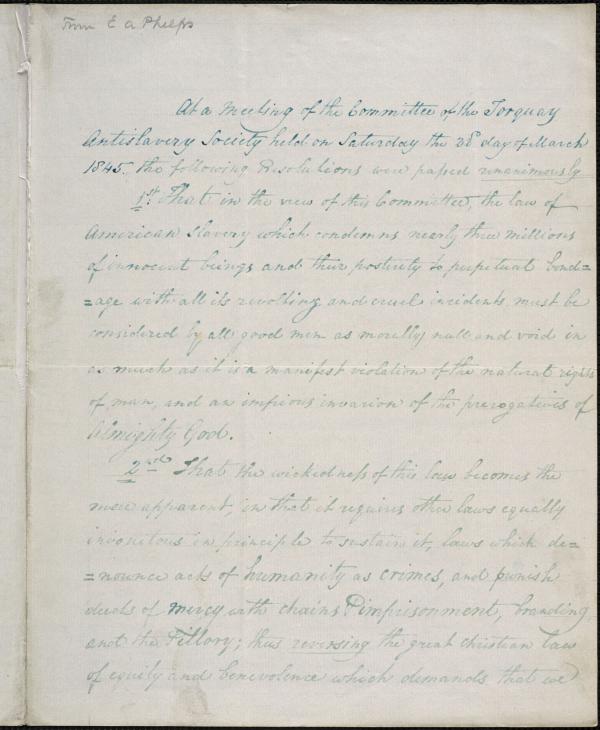 From E A Phelps
At a Meeting of the Committee of the Torquay
Antislavery Society held on Saturday the day of March
1845. the following Resolutions were passed unanimously
1st. That in the view of this Committee, the law of
American Slavery which condemns nearly three millions
of innocent beings and their posterity to perpetual bond=
=age with all its revolting and cruel incidents must be
considered by all good men as morally null and void in
as much as it is a manifest violation of the natural rights
of man, and an impious invasion of the prerogatives of
Almighty God.
2nd That the wickedness of this law becomes the
more apparent, in that it requires other laws equally
in principle to sustain it, laws which de=
=nounce acts of humanity as crimes, and punish
deeds of mercy with chains imprisonment, branding,
and the Pillory; thus reversing the great christian law
of equity and benevolence which demands that we